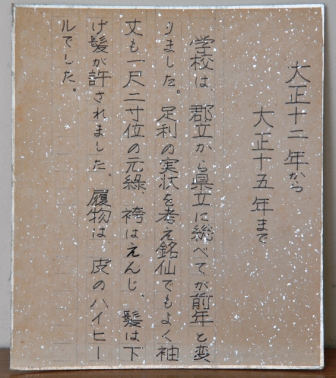 大正十二年から
大正十五年まで
学校は、郡立から県立に総べてが前年と変
りました。足利の実状を考え銘仙でもよく袖
丈も一尺二寸位の元緑、袴はえんじ、髪は下
げ髪が許されました、履物は、皮のハイヒー
ルでした。